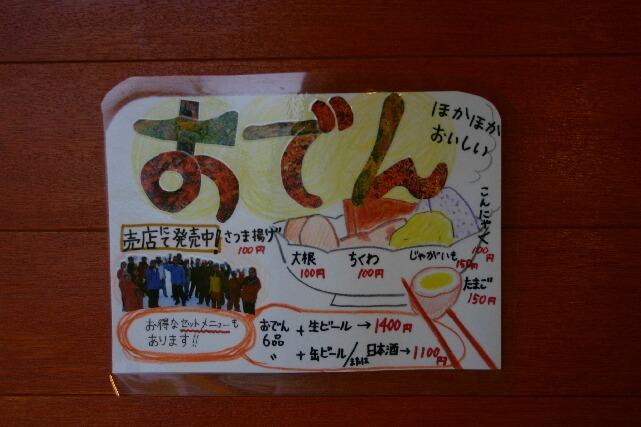 おでん
ほかほか
おいしい
売店にて発売中!
さつま揚げ
100円
大根
100円
ちくわ
100円
じゃがいも
150円
こんにゃく
100円
たまご
150円
お得なセットメニューも
あります!!
おでん
6品
+ 生ビール → 1400円
〃 + 缶ビール/または日本酒 → 1100円